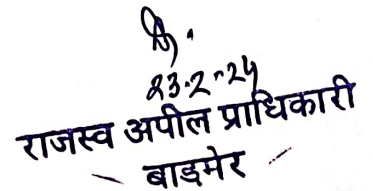 23.2.24
राजस्व अपील प्राधिकारी
बाड़मेर